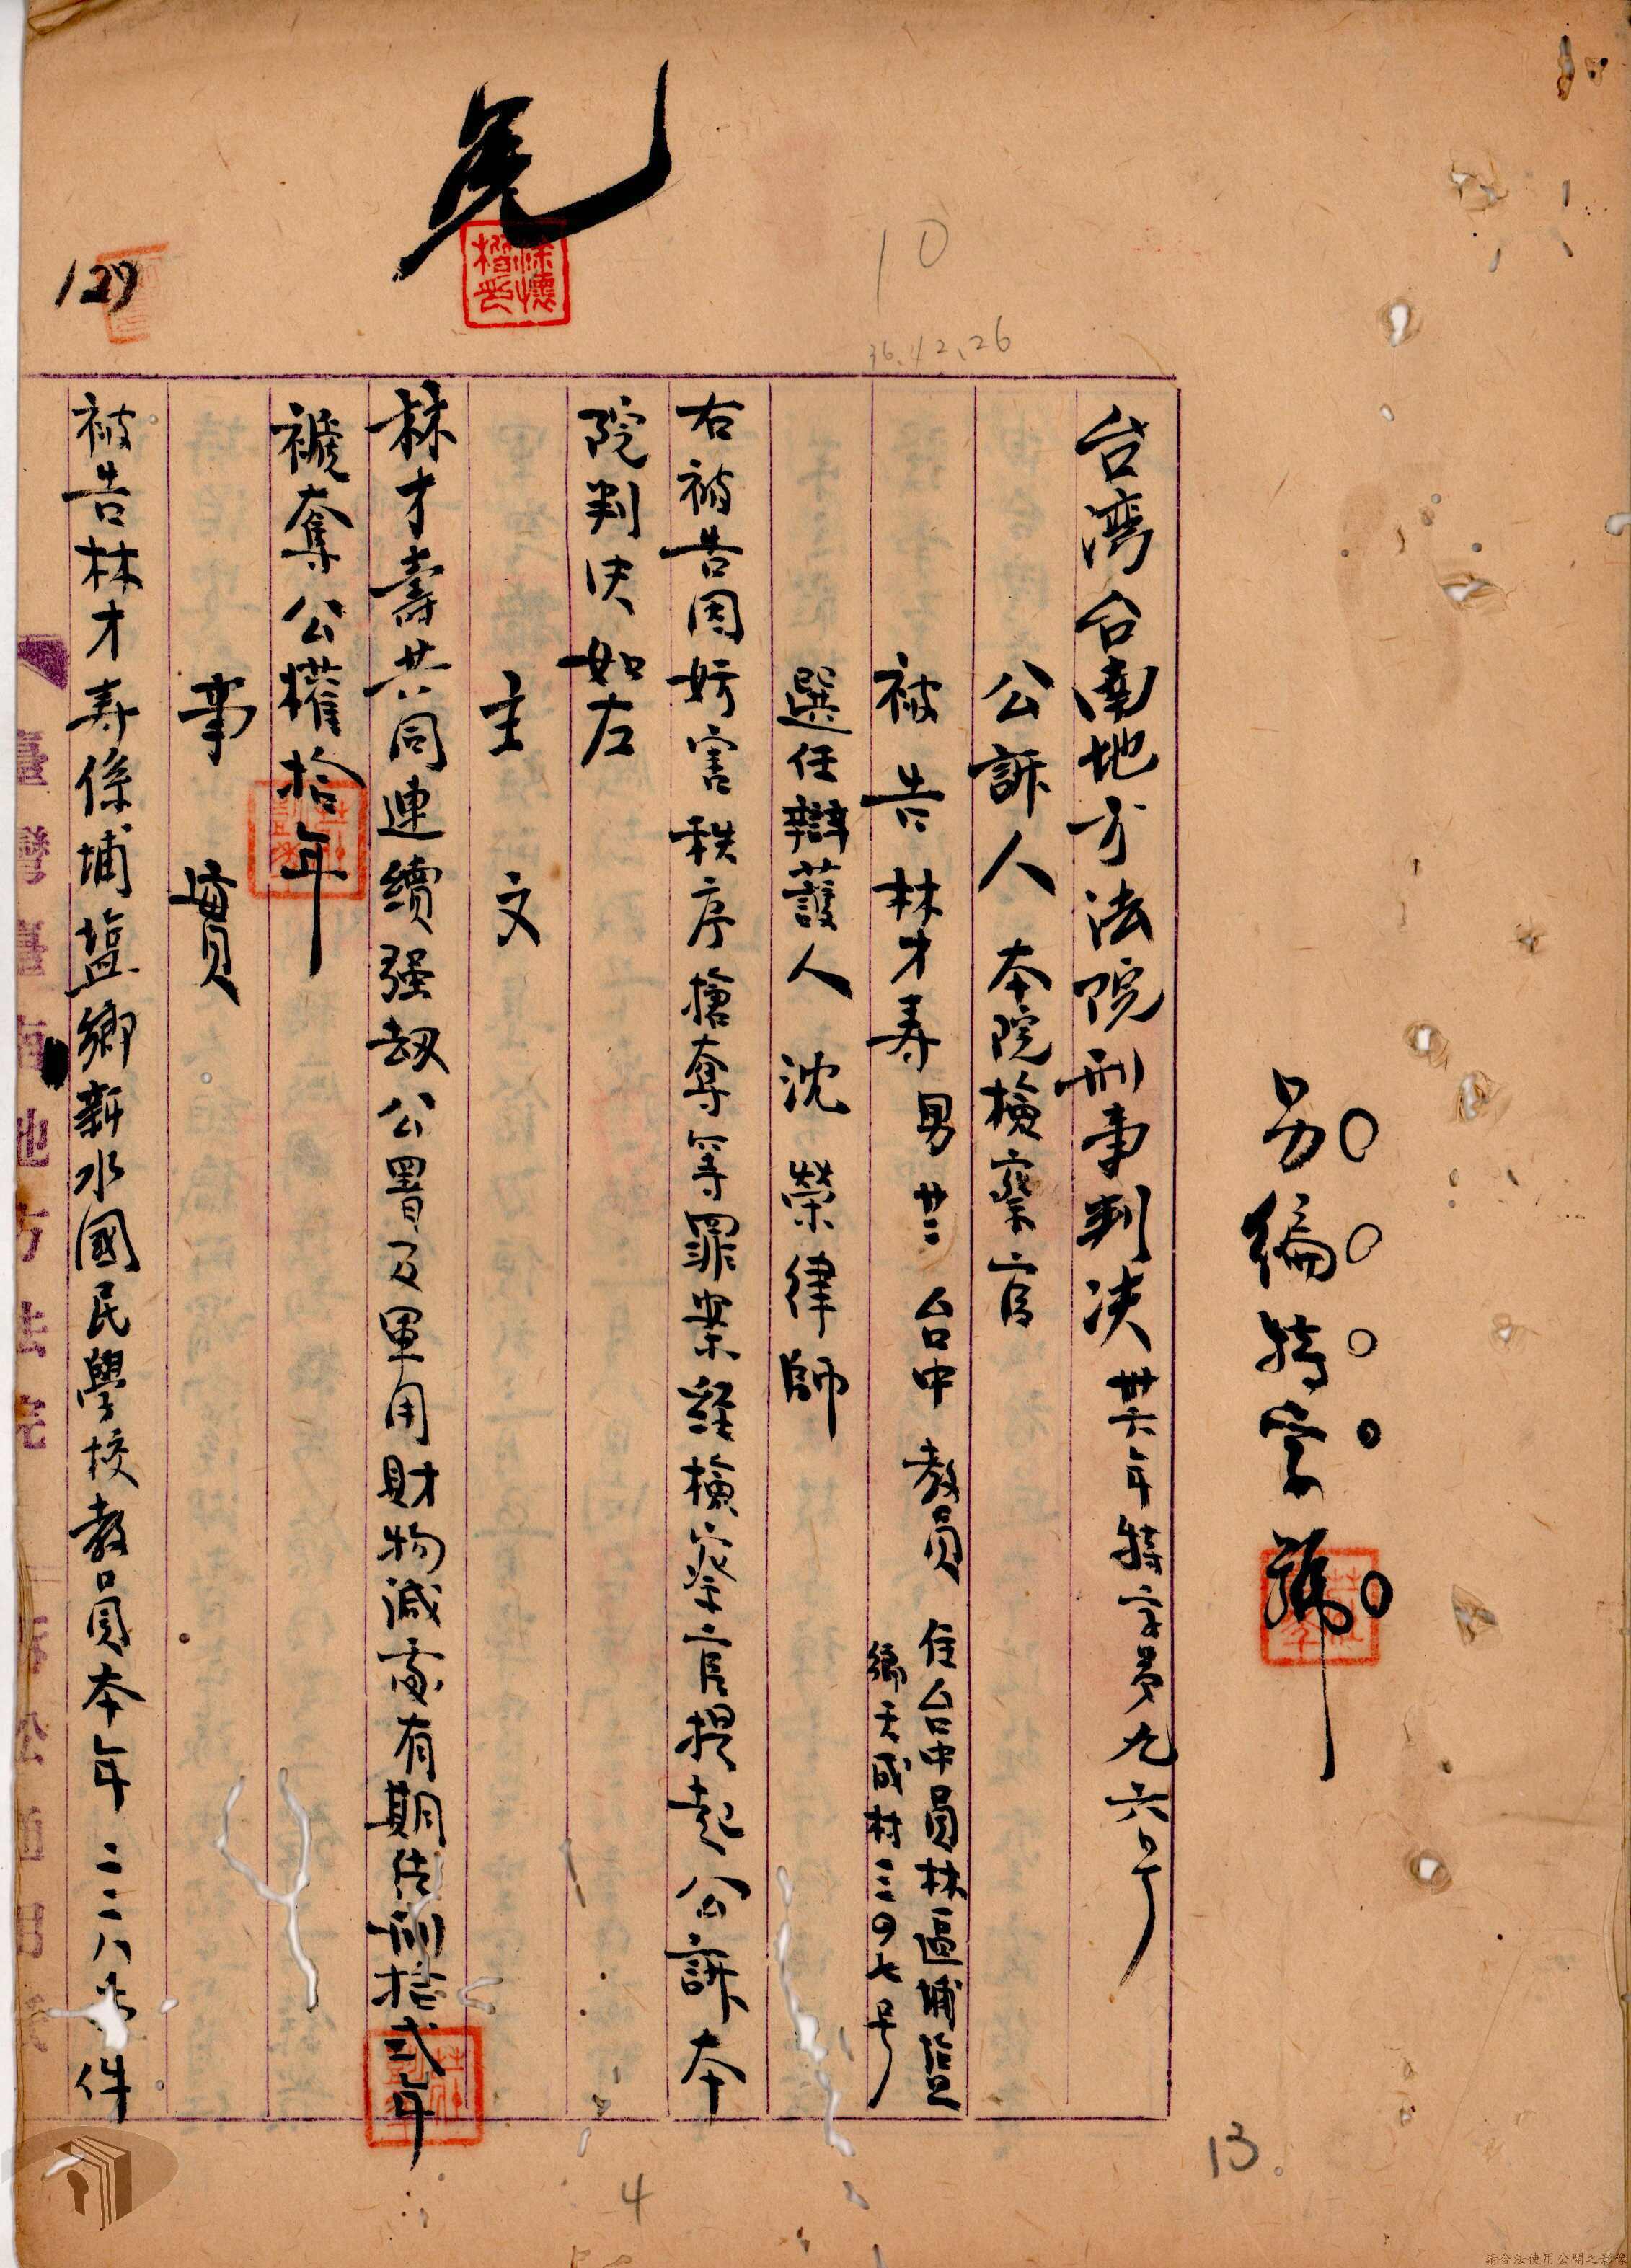 另編特字號
台湾台南地方法院刑事判决 卅六年特字第九六号
公訴人 本院檢察官
被告 林才寿 男 廿二 台中 教員 住台中員林區埔盐
鄉天盛村三四七号
選任辯護人 沈榮律師
右被告因妨害秩序搶奪等罪案經檢察官提起公訴本
院判决如左
主文
林才壽共同連續强劫公署及軍用財物減處有期徒刑拾弍年
褫奪公權拾年
事實
被告林才寿係埔盐鄉新水國民學校教員本年二二八事件
10
36.42.26
129
13
4
請合法使用公開之影像